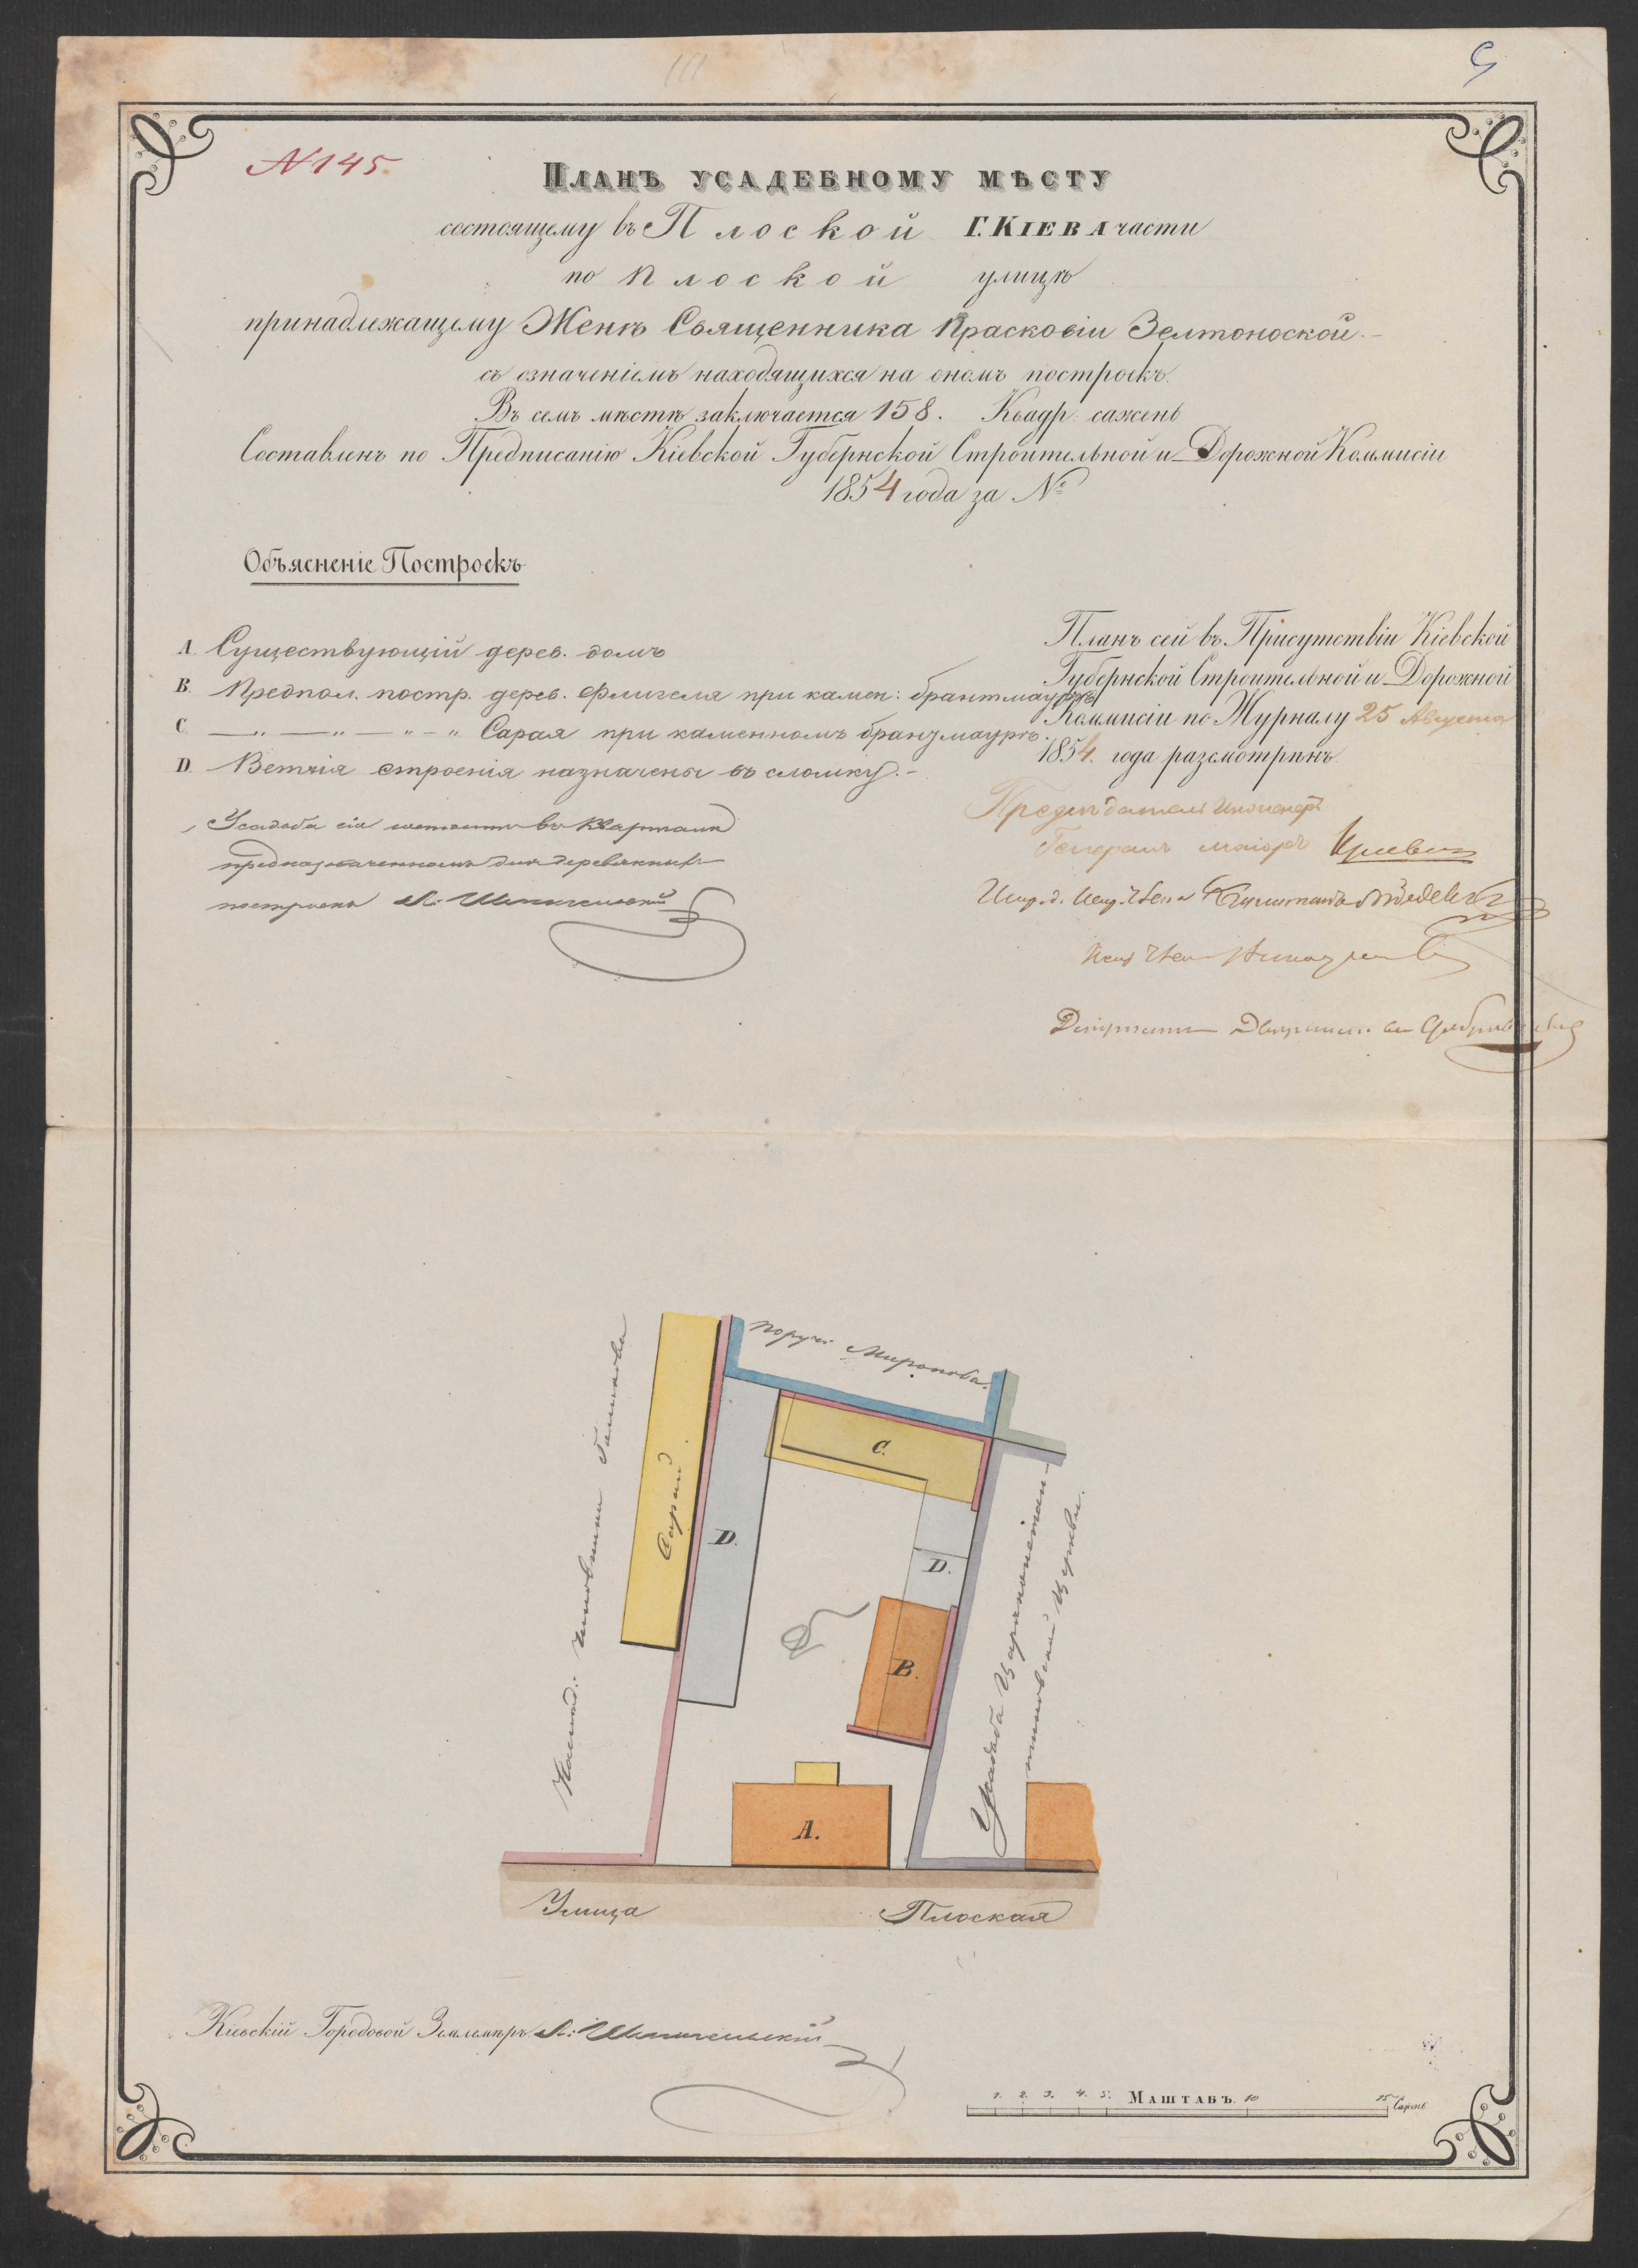 N 145.
Планъ усадебному мѣсту
состоящему въ Плоской Г. Кіева части
по Плоской улицѣ
принадлежащему Женѣ Священника Прасковіи Зелтоноской.
съ означеніемъ находящихся на ономъ построекъ.
Въ семъ мѣстѣ заключается 158. Квадр: сажень
Составленъ по Предписанію Кіевской Губернской Строительной и Дорожной Коммисіи
1854 года за №
Объясненіе Построекъ
A. Существующій дерев. домъ
B. Предпол. постр. дерев. флигеля при камен: брантмаурѣ
C. — „ — „ — „ – „ Сарая при каменномъ брандмаурѣ.
D. Ветхія строенія назначены въ сломку. –
Усадьба сія состоитъ въ Кварталѣ
предназначенномъ для деревянныхъ
построекъ
Планъ сей въ Присутствіи Кіевской
Губернской Строительной и Дорожной
Коммисіи по Журналу 25 Августа
1854. года разсмотрѣнъ
Предсѣдатель Инженеръ
Генералъ Маіоръ
поруч: Миронова.
Сарай
C.
D.
D.
B.
A.
Усадьба Цареконстан-
тиновской Церкви.
Улица Плоская
Кіевскій Городовой Землемѣръ
1. 2. 3. 4. 5. Маштабъ. 10 15 Сажень